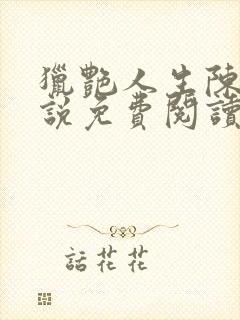 獵艷人生陳
說免費閱讀
話花花